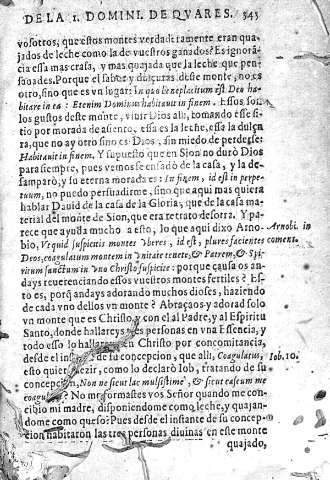 DE LA 1. DOMINI. DE QVARES. 543
vosotros, que estos montes verdaderamente eran qua-
jados de leche como la de vuestros ganados? Es ignorã-
cia essa mas crasa, y mas quajada que la leche que pen-
sauades. Porque el sabor y dulçuras deste monte, no es
otro, sino que es vn lugar: In quo beneplacitum est Deo ha-
bitare in eo: Etenim Dominus habitauit in finem. Essos son
los gustos deste monte, viuir Dios alli, tomando esse si-
tio por morada de asiento, essa es la leche, essa la dulçu
ra, que no ay otro sino es Dios, sin miedo de perderse:
Habitauit in finem. Y supuesto que en Sion no duró Dios
para siempre, pues vemos se enfadó de la casa, y la de-
samparò, y su eterna morada es: In finem, id est in perpe-
tuum, no puedo persuadirme, sino que aqui mas quiera
hablar Dauid de la casa de la Gloria, que de la casa ma-
terial del monte de Sion, que era retrato desotra. Y pa-
rece que ayuda mucho a esto, lo que aqui dixo Arno-
bio, Vt quid suspicitis montes vberes, id est, plures facientes
Deos, coagulatum montem in vnitate reuera, & Patrem, & Spi-
ritum sanctum in vno Christo suspicite: porque causa os an-
days reuerenciando essos vuestros montes fertiles? Es-
to es, porq̃ andays adorando muchos dioses, haziendo
de cada vno dellos vn monte? Abraçaos y adorad solo
vn monte que es Christo, y con el al Padre, y al Espiritu
Santo, donde hallareys tres personas en vna Essencia, y
todo esso lo hallareys en Christo por concomitancia,
desde el instante de su concepcion, que alli, Coagulatus,
esto quiere dezir, como lo declarò Iob, tratando de su
concepcion, Non ne sicut lac mulsisti me, & sicut caseum me
coagulasti? No me formastes vos Señor quando me con-
cibio mi madre, disponiendome como leche, y quajan-
dome como queso? Pues desde el instante de su concep-
cion habitaron las tres personas diuinas en esse monte
quajado,
Arnobi. in
coment.
Iob. 10.